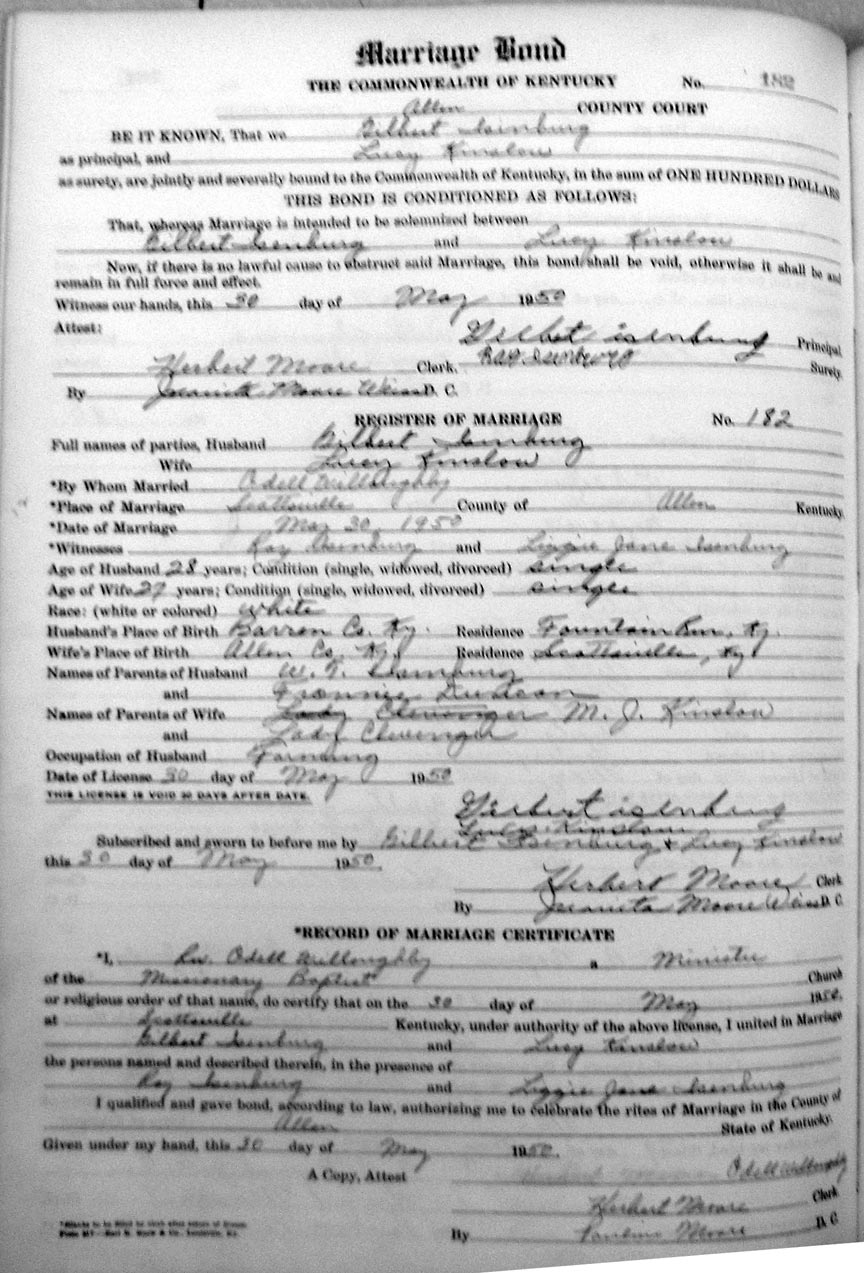 Marriage Bond
THE COMMONWEALTH OF KENTUCKY No. 182
Allen COUNTY COURT
BE IT KNOWN, That we Gilbert Isenburg
as principal, and Lucy Kinslow
as surety, are jointly and severally bound to the Commonwealth of Kentucky, in the sum of ONE HUNDRED DOLLARS
THIS BOND IS CONDITIONED AS FOLLOWS:
That, whereas Marriage is intended to be solemnized between
Gilbert Isenburg and Lucy Kinslow
Now, if there is no lawful cause to obstruct said Marriage, this bond shall be void, otherwise it shall be and
remain in full force and effect.
Witness our hands, this 30 day of May 1950
Attest: Gilbert isenburg Principal
Herbert Moore Clerk. Ray Isenburg Surety.
By Moore Weiss D. C.
REGISTER OF MARRIAGE No. 182
Full names of parties, Husband Gilbert Isenburg
Wife Lucy Kinslow
*By Whom Married Odell Willoughby
*Place of Marriage Scottsville County of Allen Kentucky
*Date of Marriage May 30, 1950
*Witnesses Roy Isenburg and Lizzie Jane Isenburg
Age of Husband 28 years; Condition (single, widowed, divorced) single
Age of Wife 27 years; Condition (single, widowed, divorced) single
Race: (white or colored) White
Husband's Place of Birth Barren Co. Ky. Residence Fountain Run, Ky.
Wife's Place of Birth Allen Co. Ky. Residence Scottsville, Ky
Names of Parents of Husband W. T. Isenburg
and Frannie
Names of Parents of Wife Lady Clevenger M. J. Kinslow
and Lady Clevenger
Occupation of Husband Farming
Date of License 30 day of May 1950
THIS LICENSE IS VOID 30 DAYS AFTER DATE.
Gilbert isenburg
Lucy Kinslow
Subscribed and sworn to before me by Gilbert Isenburg & Lucy Kinslow
this 30 day of May 1950.
Herbert Moore Clerk
By Juanita Moore Weiss D. C.
*RECORD OF MARRIAGE CERTIFICATE
*I, Rev. Odell Willoughby a Minister
of the Missionary Baptist Church
or religious order of that name, do certify that on the 30 day of May 1950.
at Scottsville Kentucky, under authority of the above license, I united in Marriage
Gilbert Isenburg and Lucy Kinslow
the persons named and described therein, in the presence of
Roy Isenburg and Lizzie Jane Isenburg
I qualified and gave bond, according to law, authorizing me to celebrate the rites of Marriage in the County of
Allen State of Kentucky.
Given under my hand, this 30 day of May 1950.
A Copy, Attest Odell Willoughby
Herbert Moore Clerk
By Pauline Moore D. C.